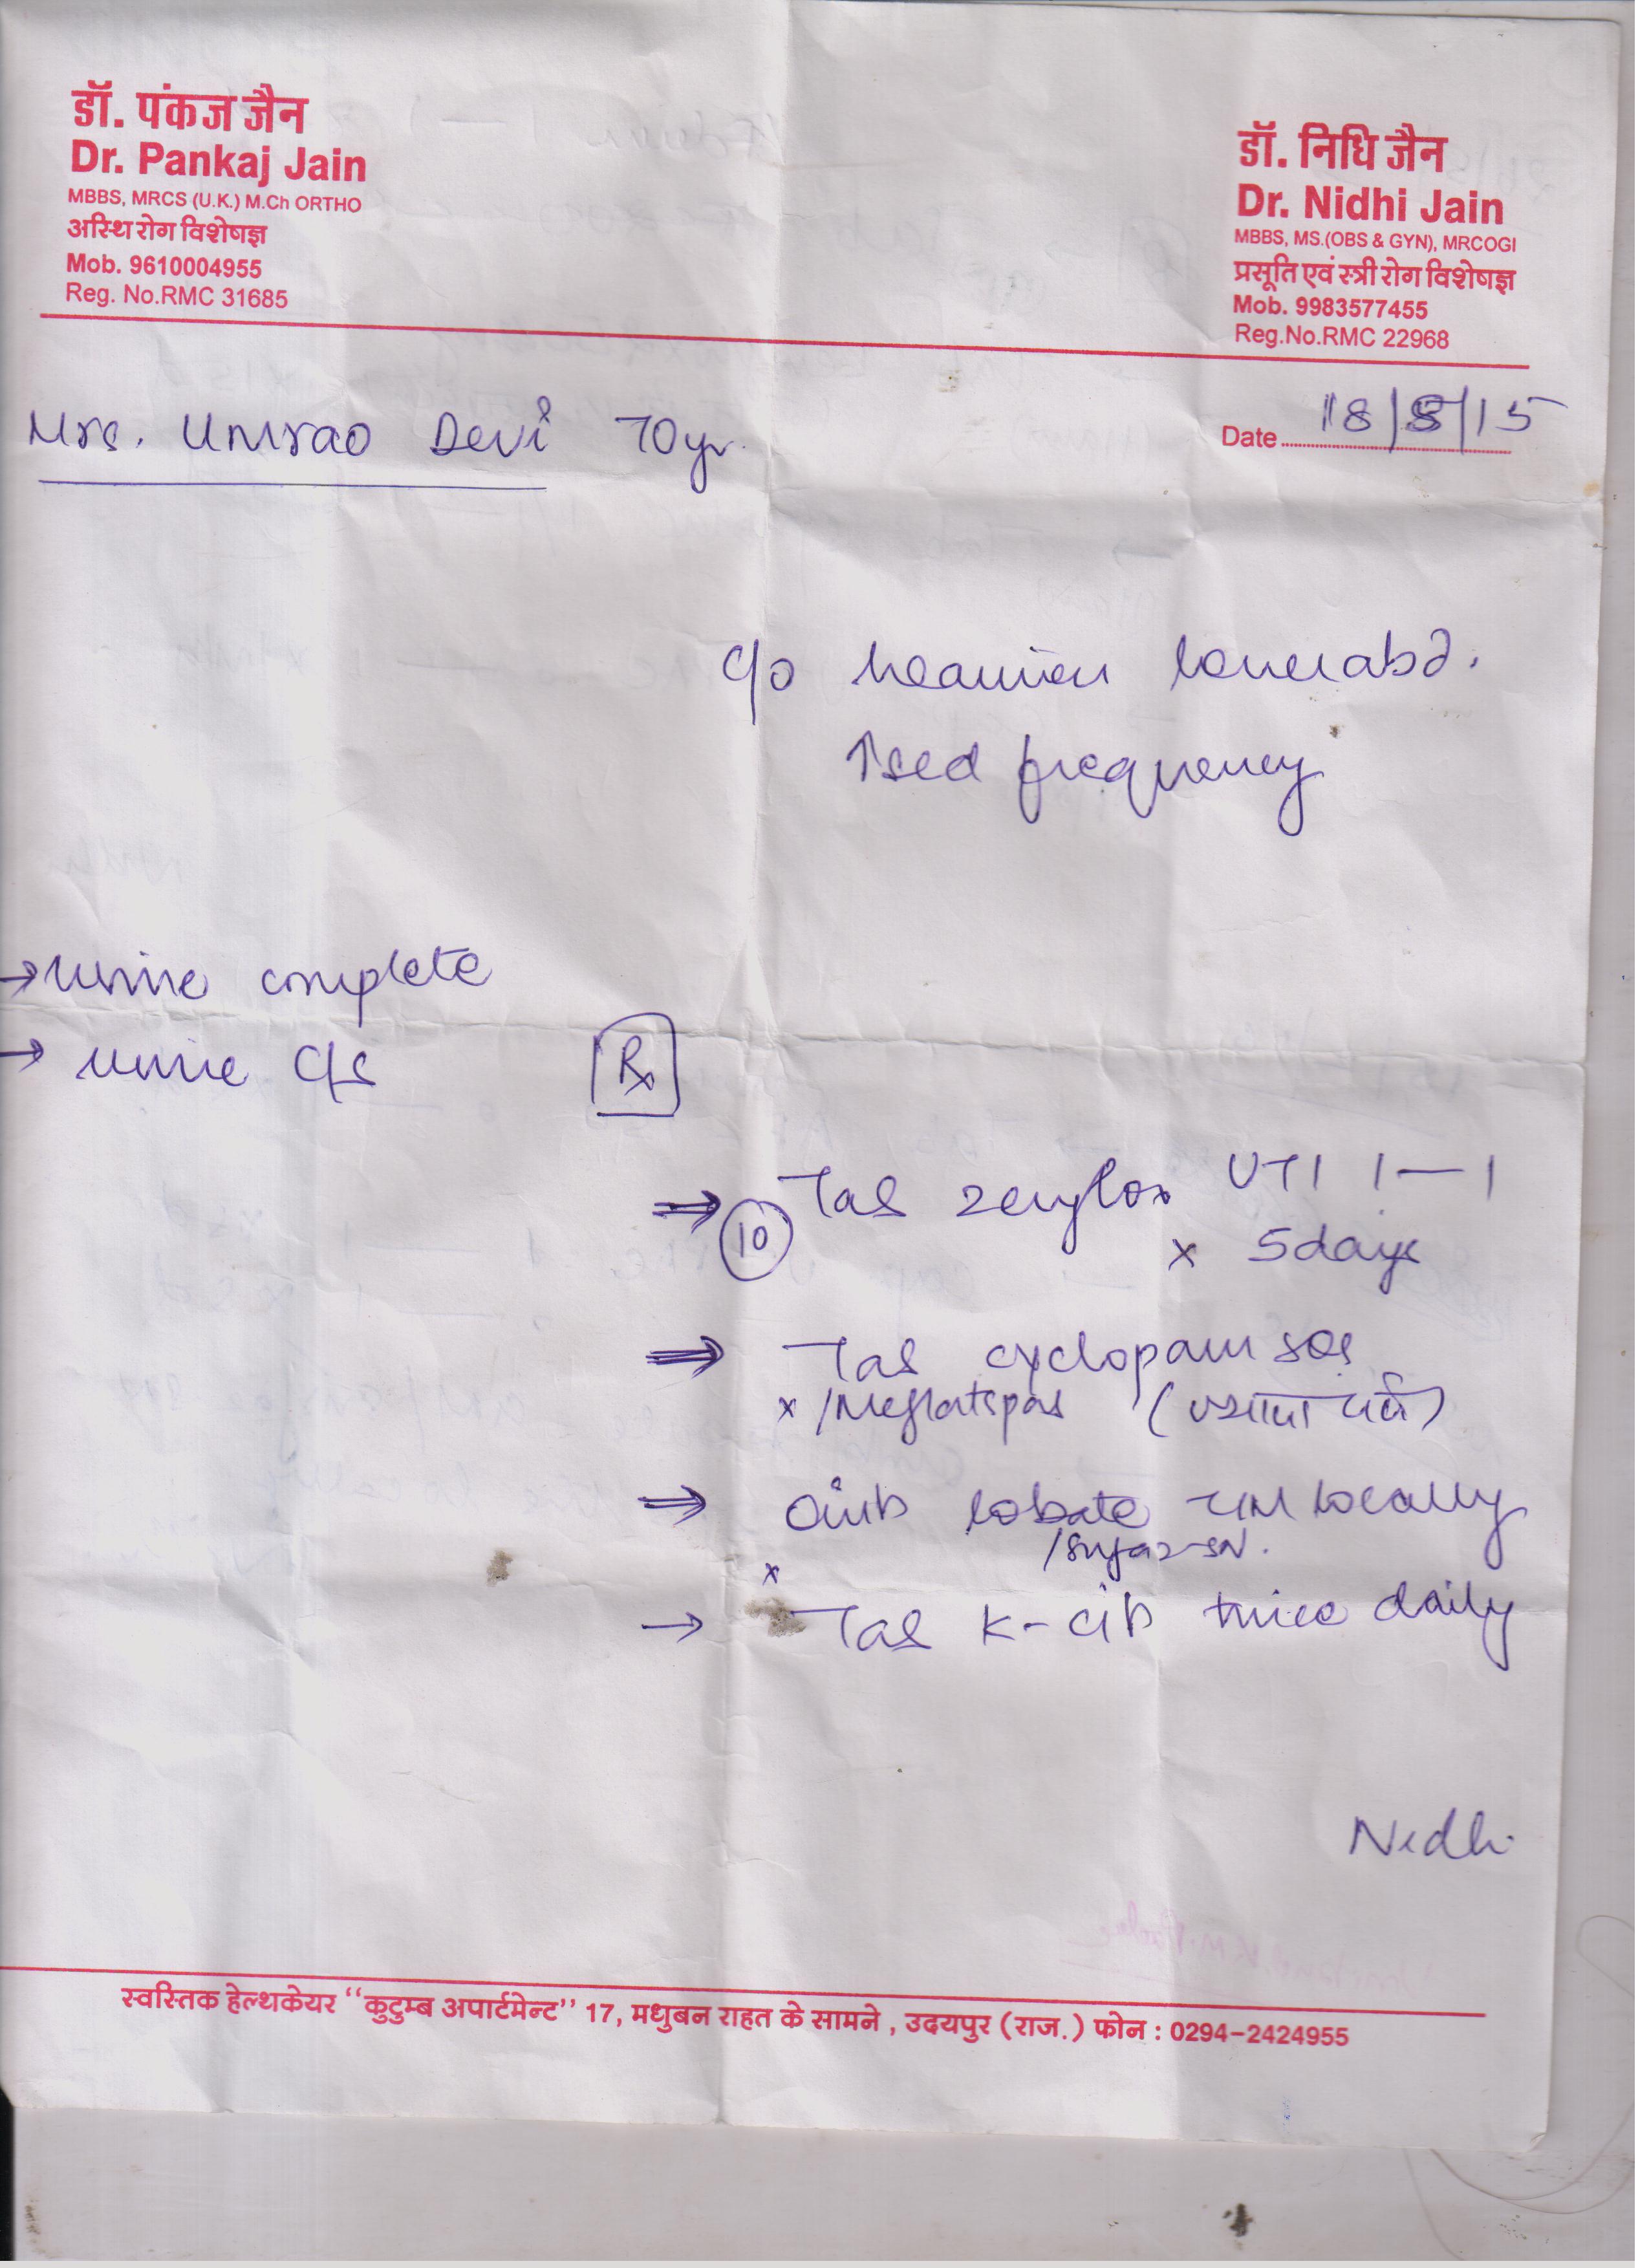 डॉ. पंकज जैन
Dr. Pankaj Jain
MBBS, MRCS (U.K.) M.Ch ORTHO
अस्थि रोग विशेषज्ञ
Mob. 9610004955
Reg. No.RMC 31685
डॉ. निधि जैन
Dr. Nidhi Jain
MBBS, MS.(OBS & GYN), MRCOGI
प्रसूति एवं स्त्री रोग विशेषज्ञ
Mob. 9983577455
Reg.No.RMC 22968
Date 18/8/15
Mrs. Umrao Devi 70yr.
c/o lower abd.
↑sed frequency
→ urine complete
→ urine c/s
Rx
⇒ 10 Tab UTI 1 — 1
x 5 days
⇒ Tab cyclopam sos
x /Meftalspas
⇒ Oint lobate GM locally
x
→ Tab K-cit twice daily
Nidhi
स्वस्तिक हेल्थकेयर ‘‘कुटुम्ब अपार्टमेन्ट’’ 17, मधुबन राहत के सामने, उदयपुर (राज.) फोन : 0294-2424955